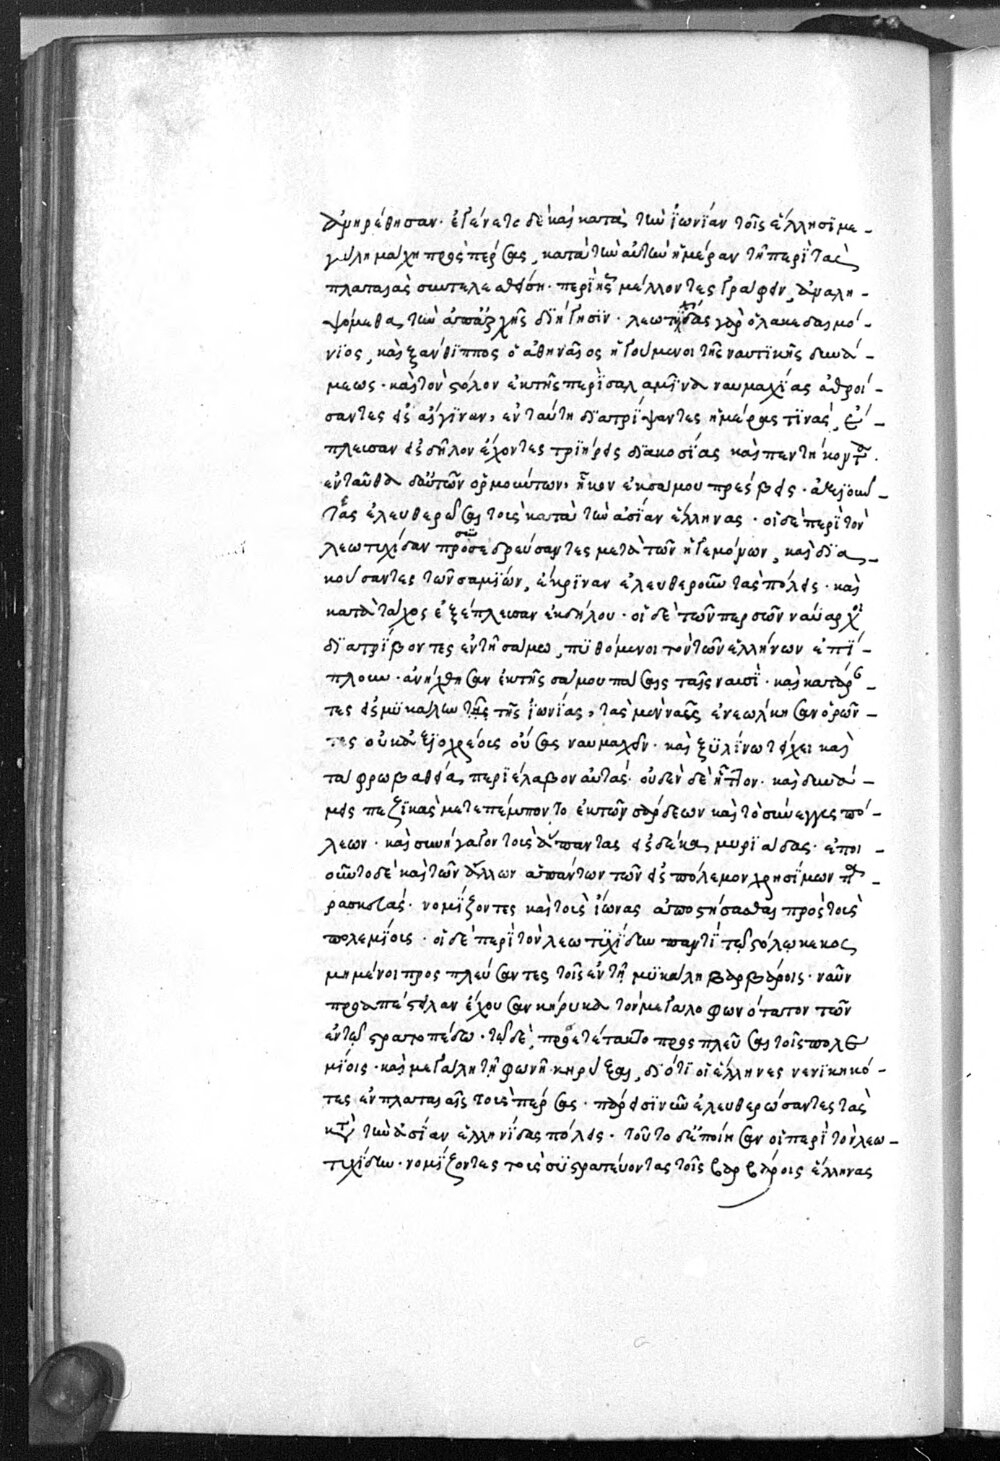 ἀνηρέθησαν· ἐγένετο δὲ καὶ κατὰ τὴν ἰωνίαν τοῖς ἕλλησι με-
γάλη μάχη πρὸς πέρσας, κατὰ τὴν αὐτὴν ἡμέραν τῆ περὶ τὰς
πλαταιὰς συντελεσθείση· περὶ ἧς μέλλοντες γράφειν, ἀναλη-
ψόμεθα τὴν ἀπαρχῆς διήγησιν· λεωτυχίδας γὰρ ὁ λακεδαιμό-
νιος, καὶ ξανθιππος ὁ ἀθηναῖος ἡγούμενοι τῆς ναυτικῆς δυνά-
μεως· καὶ τὸν στόλον ἐκ τῆς περὶ σαλαμῖνα ναυμαχίας ἀθροί-
σαντες εἰς αἴγιναν, ἐν ταύτη διατρίψαντες ἡμέρας τινὰς, ἔ-
πλευσαν εἰς δῆλον ἔχοντες τριήρεις διακοσίας καὶ πεντήκοντα·
ἐνταῦθα δ' αὐτῶν ὁρμούντων, ἧκον ἐκ σάμου πρέσβεις· ἀξιοῦν-
τες ἐλευθερῶσαι τοὺς κατὰ τὴν ἀσίαν ἕλληνας· οἱ δὲ περὶ τὸν
λεωτιχίδαν συνεδρεύσαντες μετὰ τῶν ἡγεμόνων, καὶ δια-
κούσαντες τῶν σαμίων, ἔκριναν ἐλευθεροῦν τὰς πόλεις· καὶ
κατὰ τάχος ἐξέπλευσαν ἐκ δήλου· οἱ δὲ τῶν περσῶν ναύαρχοι
διατρίβοντες ἐν τῆ σάμω, πυθόμενοι τὸν τῶν ἑλλήνων ἐπί-
πλουν· ἀνήχθησαν ἐκ τῆς σάμου πάσαις ταῖς ναυσὶ· καὶ κατάρ-
τες εἰς μυκάλην τῆς ἰωνίας, τὰς μὲν ναῦς ἐνεώλκησαν ὁρῶν-
τες οὐκ ἀξιοχρέοις οὔσας ναυμαχεῖν· καὶ ξυλίνω τείχει καὶ
τάφρω βαθεία περιέλαβον αὐτάς· οὐδὲν δὲ ἧττον· καὶ δυνά-
μεις πεζικὰς μετεπέμποντο ἐκ τῶν σάρδεων καὶ τὸ σύνεγγυς πό-
λεων· καὶ συνήγαγον τοὺς ἅπαντας εἰς δέκα μυριάδας· ἐποι-
οῦντο δὲ καὶ τῶν ἄλλων ἁπάντων τῶν εἰς πόλεμον χρησίμων πα-
ρασκευάς· νομίζοντες καὶ τοὺς ἴωνας ἀποστήσασθαι πρὸς τοὺς
πολεμίοις· οἱ δὲ περὶ τὸν λεωτιχίδην παντὶ τῶ στόλω κεκος
μημένοι προσπλεύσαντες τοῖς ἐν τῆ μυκάλη βαρβάροις· ναῦν
προαπέστειλαν ἔχουσαν κήρυκα τὸν μεγαλοφωνότατον τῶν
ἐν τῶ στρατοπέδω· τῶδε, προσετέτακτο προσπλεῦσαι τοῖς πολε
μίοις· καὶ μεγάλη τῆ φωνῆ κηρύξαι, διότι οἱ ἕλληνες νενικηκό-
τες ἐν πλαταιαῖς τοὺς πέρσας· πάρεισι νῦν ἐλευθερώσαντες τὰς
κατὰ τὴν ἀσίαν ἑλληνίδας πόλεις· τοῦτο δ' ἐποίησαν οἱ περὶ τὸν λεω-
τιχίδην· νομίζοντες τοὺς συστρατεύοντας τοῖς βαρβάροις ἕλληνας